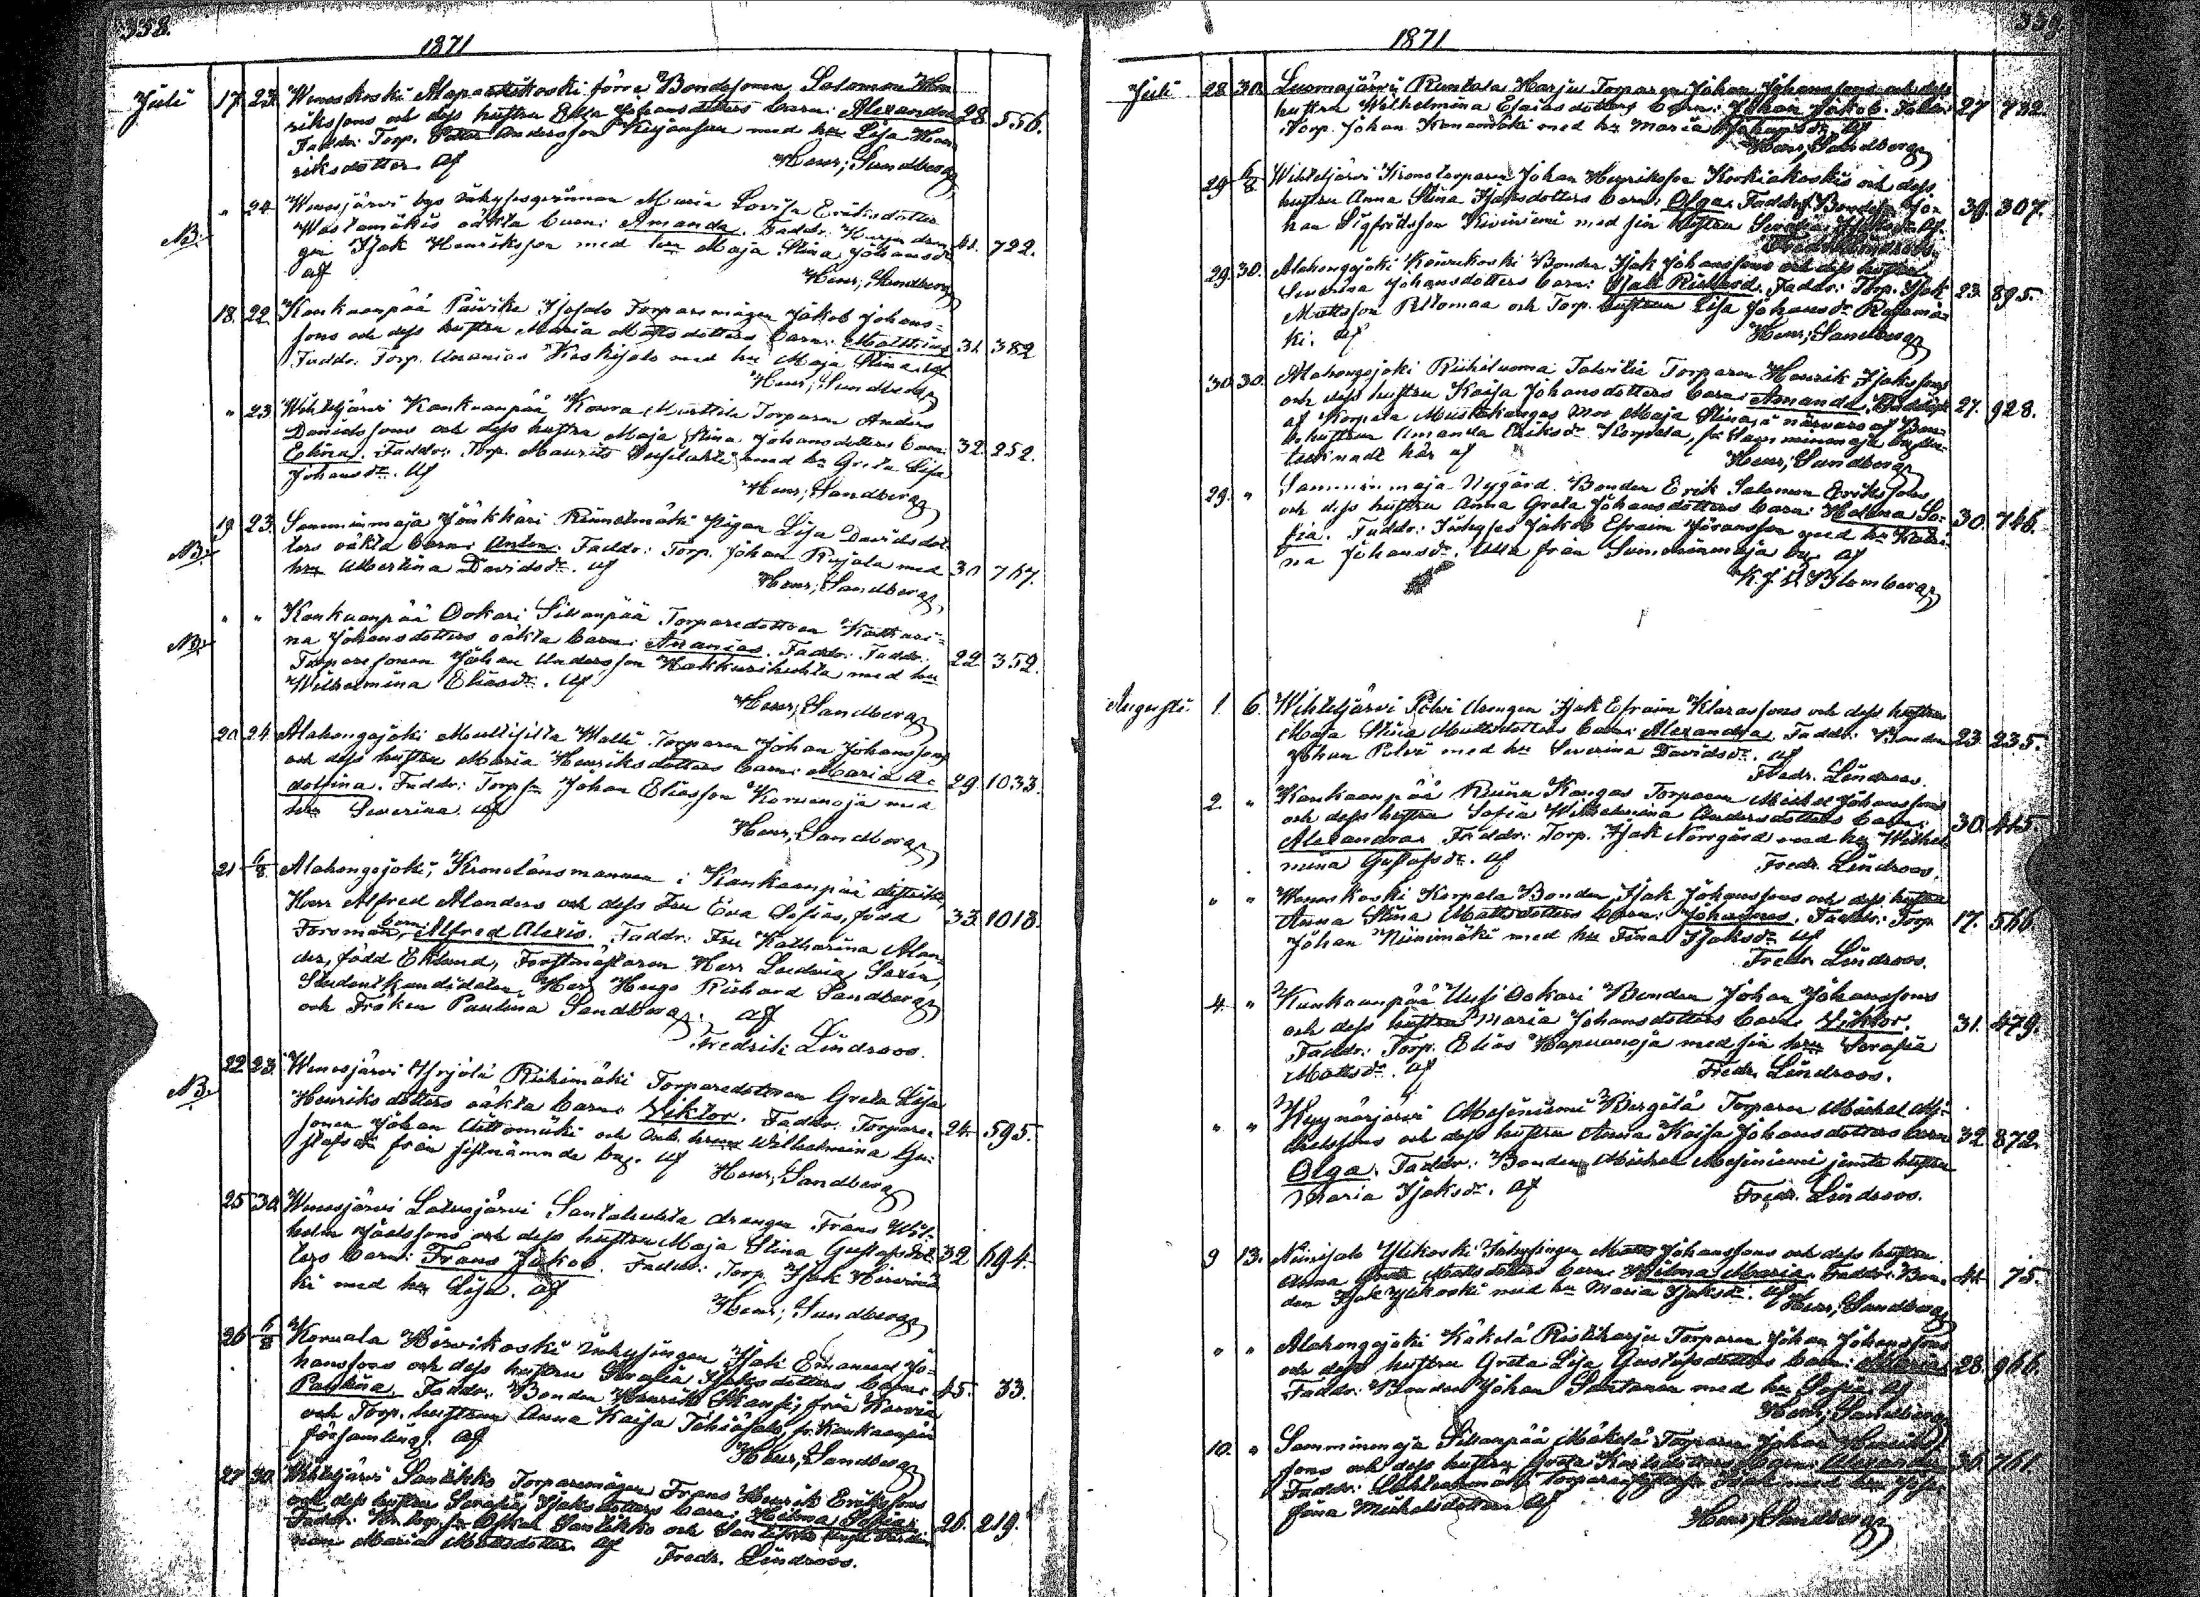 338.
1871
Juli 17. 23. Weneskoski Alapaattikoski förre Bondesonen Salomon Hen
rikssons och dess hustru Ulla Johansdotters barn: Alexandra 28. 556.
Faddr: Torp. Andersson med hu Lisa Hen
riksdotter. af Henr; Sandberg
NB. " 24. Wenesjärvi bys inhysesqvinnan Maria Lovisa Eriksdotter
oäkta barn: Amanda. Faddr:
Isak Henriksson med hu Maja Stina Johansdr 41. 722.
af Henr; Sandberg
18. 22. Kankaanpää Päivike Torparemågen Jakob Johans=
sons och dess hustru Maria Mattsdotters barn: Matthias 31. 382
Faddr. Torp. Ananias Koskisalo med hu Maja Stina. af
Henr; Sandberg
" 23. Wihteljärvi Kankaanpää Koura Torparen Anders
Davidssons och dess hustru Maja Stina Johansdotters barn: 32. 252.
Elina. Faddr: Torp. Maurits med hu Greta Lisa
Johansdr. af
Henr; Sandberg
NB. 19. 23. Samminmaja Jönkkäri Rinnelmäki Pigan Lisa Davidsdot
ters oäkta barn: Anton. Faddr: Torp. Johan med 30 767.
hu Albertina Davidsdr. af
Henr; Sandberg
NB. " " Kankaanpää Ookari Sillanpää Torparedottren Kathari=
na Johansdotters oäkta barn: Ananias. Faddr: Faddr: 22. 352.
Torparesonen Johan Andersson Hakkurikuhta med hu
Wilhelmina Eliasdr. af
Henr; Sandberg
20. 24. Alahongojoki Walli Torparen Johan Johanssons
och dess hustru Maria Henriksdotters barn: Maria A=
dolfina. Faddr: Torpsn Johan Eliasson Koruenoja med 29. 1033.
hu Severina. af
Henr; Sandberg
21 6/8. Alahongojoki, Kronolänsmannen i Kankaanpää distrikt
Herr Alfred Alanders och dess Fru Eva Sofias, född
Forsman, barn: Alfred Alexis. Faddr: Fru Katharina Alan= 33. 1018.
der, född Eklund, Forstmästaren Herr Ludvig Saxén,
Studentkandidaten Herr Hugo Richard Sandberg
och Fröken Paulina Sandberg. af
Fredrik Lindroos.
NB. 22 23. Wenesjärvi Yrjölä Riihimäki Torparedottren Greta Lisa
Henriksdotters oäkta barn: Viktor. Faddr. Torpare=
sonen Johan och Wilhelmina Gu= 24. 595.
stafsdr från sistnämnde by. af Henr; Sandberg
25 30. Wenesjärvi Latvajärvi Santahuhta drängen Frans Wil=
helm Joelssons och dess hustru Maja Stina Gustafsdot= 32 694.
ters barn: Frans Jakob. Faddr: Torp. Isak Hirvimä
ki med hu Lisa. af
Henr; Sandberg
26 6/8 Korvala Hirvikoski inhysingen Isak Emanuel Jo=
hanssons och dess hustru Serafia Isaksdotters barn:
Paulina. Faddr: Bonden Henrik från Karvia 45. 33.
och Torp. hustrun Anna Kaisa fr. Kankaanpää
församling. af
Henr; Sandberg
27 30. Wihteljärvi Santikko Torparemågen Frans Henrik Erikssons
och dess hustru Serafia Isaksdotters barn: Hilma Sofia. 26. 219.
Faddr: Oskar Santikko och Santikko
Maria Mattsdotter. af Fredr. Lindroos.
339
1871
Juli 28. 30. Luomajärvi Runtala Harju Torparen Johan Johanssons och dess
hustru Wilhelmina Esaiasdotters barn: Johan Jakob. Faddr: 27 782.
Torp. Johan med hu Maria Johansdr. af
Henr; Sandberg
29 6/8 Wihteljärvi Kronotorparen Johan Henriksson Korkiakoskis och dess
hustru Anna Stina Isaksdotters barn: Olga. Faddr: Bonden Jo= 39. 307.
han Sigfridsson Kiviniemi med sin hustru Serafia Isaksdr. af
Fredr. Lindroos.
29. 30. Alahongojoki Kourikoski Bonden Isak Johanssons och dess hustru
Severina Johansdotters barn: Isak Richard. Faddr: Torp. Isak 23. 895.
Mattsson Peltomaa och Torp. hustrun Lisa Johansdr Rajamä=
ki. af Henr; Sandberg
30. 30. Alahongojoki Riihiluoma Talvitie Torparen Henrik Isakssons
och dess hustru Kaisa Johansdotters barn: Amanda. 27. 928.
af Korpela Mustakangas Maja Stina i närvaro af Bon=
dehustrun Amanda Eriksdr. Korpela, fr. Samminmaja by
här af Henr; Sandberg
29. " Samminmaja Nygård Bonden Erik Salomon Erikssons
och dess hustru Anna Greta Johansdotters barn: Helena So= 30. 746.
fia. Faddr: Inhyses Jakob Efraim Jöransson med hu Katri=
na Johansdr. Alla från Samminmaja by. af
K. J. Blomberg
Augusti. 1. 6. Wihteljärvi Polvi drengen Isak Efraim Klarassons och dess hustru
Maja Stina Mattsdotters barn: Alexandra. Faddr: Bonden 23. 235.
Johan Polvi med hu Severina Davidsdr. af
Fredr. Lindroos.
2. " Kankaanpää Ruinu Kangas Torparen Michel Johanssons
och dess hustru Sofia Wilhelmina Andersdotters barn: 30. 445.
Alexandra. Faddr: Torp. Isak Norrgård med hu Wilhel=
mina Gustafsdr. af Fredr. Lindroos.
" " Weneskoski Korpela Bonden Isak Johanssons och dess hustru
Anna Stina Mattsdotters barn: Johannes. Faddr: Torp. 17. 566.
Johan Niinimäki med hu Fina Isaksdr. af
Fredr. Lindroos.
4. " Kankaanpää Uusi Ookari Bonden Johan Johanssons
och dess hustru Maria Johansdotters barn: Viktor. 31. 479.
Faddr: Torp. Elias Hapuanoja med sin hu Serafia
Mattsdr. af Fredr. Lindroos.
" " Kyynärjärvi Majiniemi Bergelä Torparen Michel Mi=
chelssons och dess hustru Anna Kaisa Johansdotters barn 32 872.
Olga. Faddr: Bonden Michel Majiniemi jemte hustru
Maria Isaksdr. af Fredr. Lindroos.
9 13. Niinisalo Ylikoski Inhysingen Matts Johanssons och dess hustru
Anna Greta Mattsdotters barn: Hilma Maria. Faddr: Bon= 44 75.
den Isak Ylikoski med hu Maria Isaksdr. af Henr; Sandberg
" " Alahongojoki Käkelä Ristiharju Torparen Johan Johanssons
och dess hustru Greta Lisa Gustafsdotters barn: Maria 28. 966.
Faddr: Bonden Johan Santanen med hu Sofia. af
Henr; Sandberg
10. " Samminmaja Sillanpää Mäkelä Torparen Johan Henriks
sons och dess hustru Greta Karlsdotters barn: Alexander 36. 761
Faddr: Isak med hu Jose
fina Michelsdotter. af
Henr; Sandberg